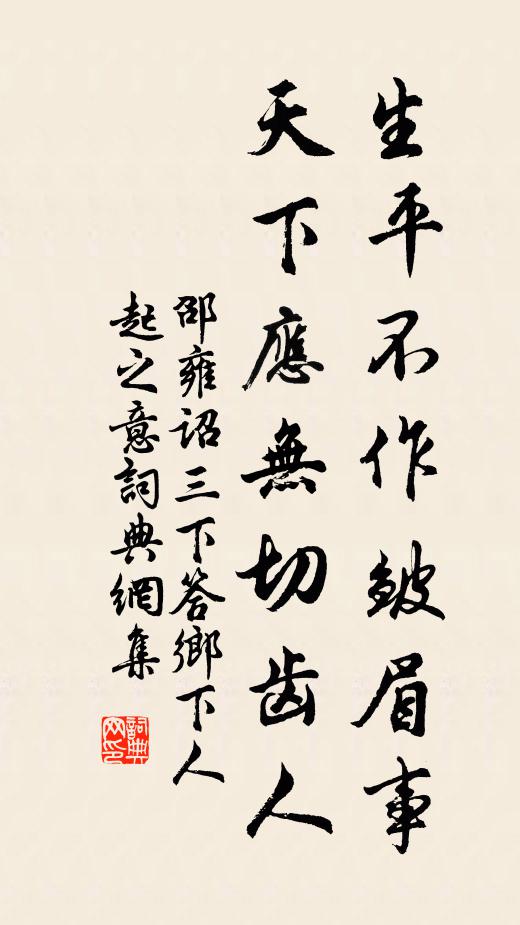 生平不作皺眉事
天下應無切齒人
邵雍詔三下答鄉下人
起之意詞典網集
詞典网印